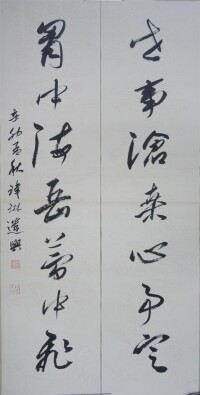 世事滄桑心事定
胸中海岳夢中飛
辛卯孟秋遣興